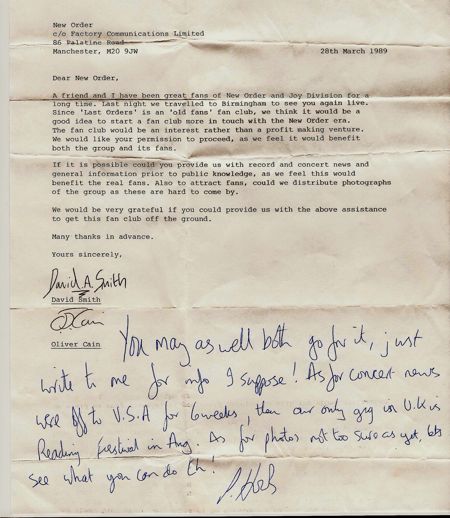 New Order
c/o Factory Communications Limited
86 Palatine Road
Manchester, M20 9JW
28th March 1989
Dear New Order,
A friend and I have been great fans of New Order and Joy Division for a
long time. Last night we travelled to Birmingham to see you again live.
Since 'Last Orders' is an 'old fans' fan club, we think it would be a
good idea to start a fan club more in touch with the New Order era.
The fan club would be an interest rather than a profit making venture.
We would like your permission to proceed, as we feel it would benefit
both the group and its fans.
If it is possible could you provide us with record and concert news and
general information prior to public knowledge, as we feel this would
benefit the real fans. Also to attract fans, could we distribute photographs
of the group as these are hard to come by.
We would be very grateful if you could provide us with the above assistance
to get this fan club off the ground.
Many thanks in advance.
Yours sincerely,
David A. Smith
David Smith
O Cain
Oliver Cain
You may as well both go for it, just
write to me for info I suppose! As for concert news
were off to U.S.A for 6 weeks, then our only gig in U.K is
Reading festival in Aug. As for photos not too sure as yet, lets
see what you can do eh!